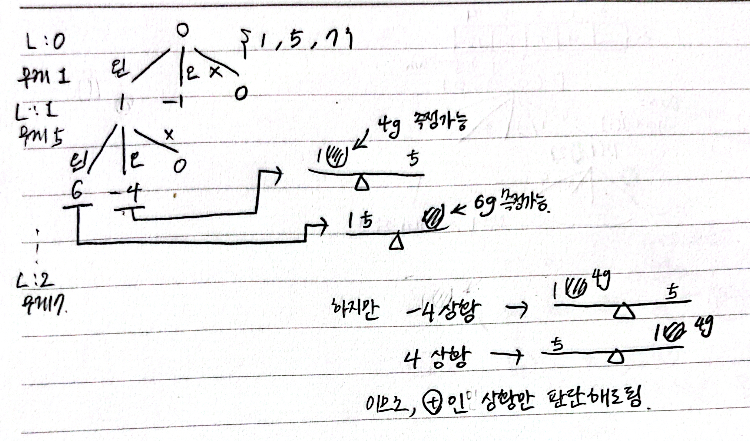 L:0 0 {1, 5, 7}
무게 1 왼 오 x
L:1 1 -1 0
무게 5 x
왼 오 0
6 -4
4g 측정가능
1 5
6g 측정가능.
1 5
L:2
무게 7.
하지만 -4 상황 → 1 4g 5
4 상황 → 5 1 4g
이므로, + 인 상황만 판단해도됨.